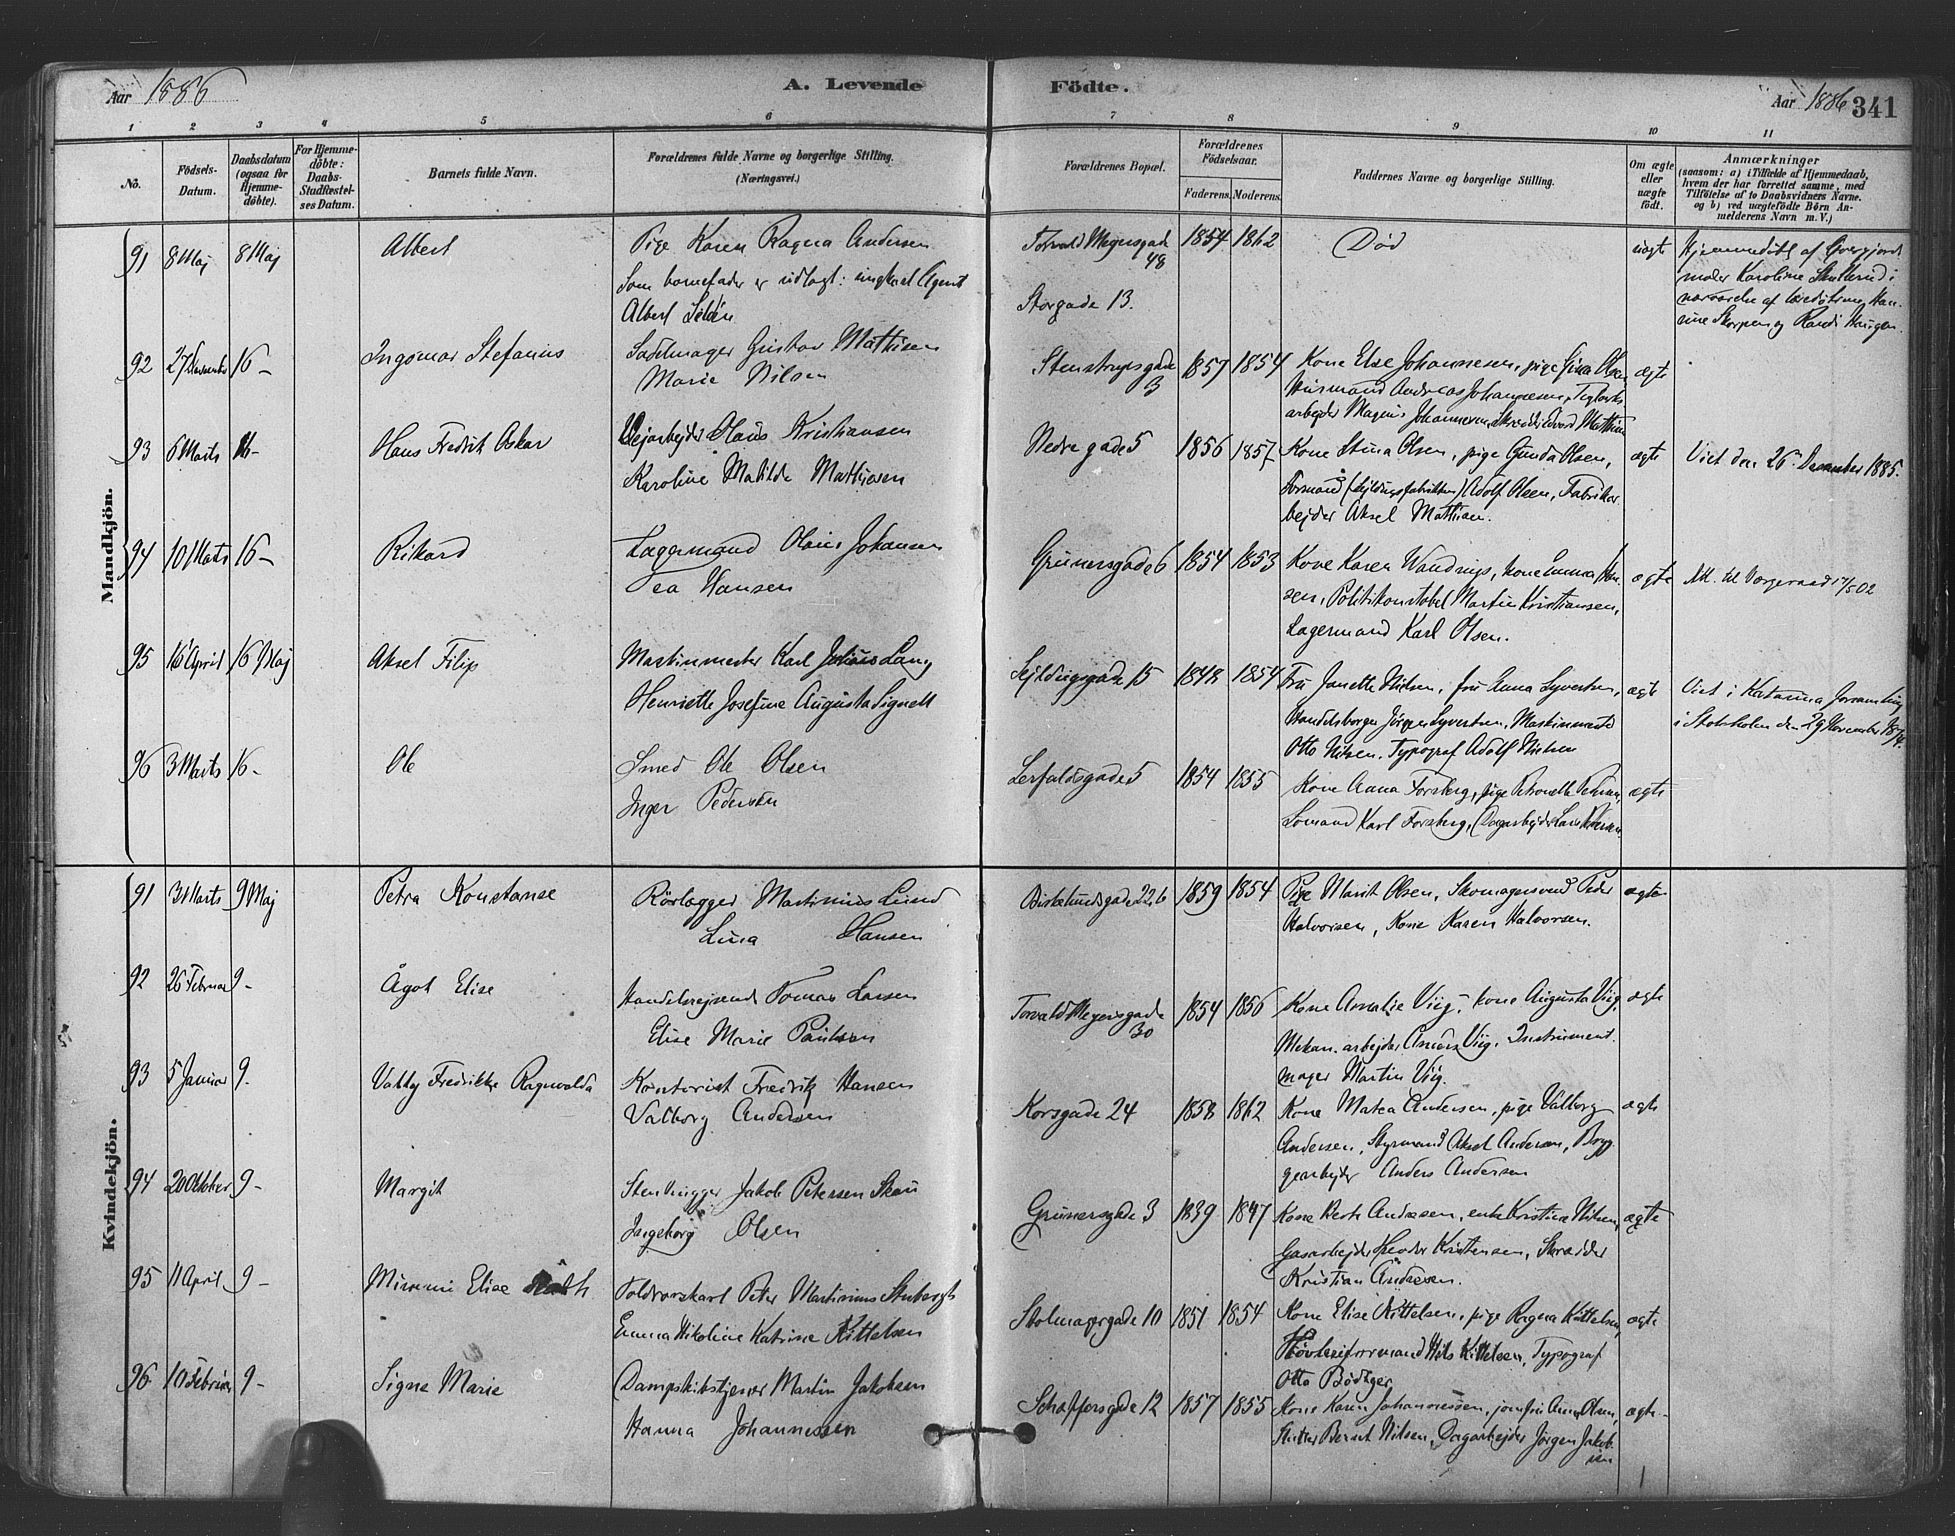 Aar 1886
A. Levende
Födte.
Aar 1886 341
1 2 3 4 5 6 7 8 9 10 11
No.
Födsels-
Datum.
Daabsdatum
(ogsaa for
Hjemme-
döbte).
For Hjemme-
döbte:
Daabs-
Stadfæstel-
ses Datum.
Barnets fulde Navn.
Forældrenes fulde Navne og borgerlige Stilling.
(Næringsvei.)
Forældrenes Bopæl.
Forældrenes
Födselsaar.
Faderens. Moderens.
Faddernes Navne og borgerlige Stilling.
Om ægte
eller
uægte
födt.
Anmærkninger
(saasom: a) i Tilfælde af Hjemmedaab,
hvem der har forrettet samme, med
Tilföielse af to Daabsvidners Navne.
og b) ved uægtefödte Börn An-
melderens Navn m. V.)
Mandkjön.
91 8 Maj 8 Maj Albert
Pige Karen Ragna Andersen
Som barnefader er udlagt: ungkarl Agent
Albert
Torvald Meyersgade
48
Storgade 13.
1854 1862 Död uægte
Hjemmedöbt af
moder Karoline i
nærværelse af
og Randi Haugen.
92 27 16- Ingomar Stefanus
Sadelmager Gustav Mathisen
Marie Nilsen
Stenstrupsgade
3
1857 1854
Kone Elise Johannessen, pige Gina Olsen
Husmand Andreas Johannesen,
arbejder Magnus Johannesen,
ægte
93 6 Marts 16- Hans Fredrik Oskar
Vejarbejder Olaus Kristiansen
Karoline Matilde Mathisen
Nedre gade 5 1856 1857
Kone Stina Olsen, pige Gunda Olsen,
Formand (Sejldugsfabrikken) Adolf Olsen, Fabrikar
bejder Aksel Mathisen.
ægte
Viet den 26 December 1885.
94 10 Marts 16- Rikard
Lagermand Olaus Johansen
Tea Hansen
Grünersgade 6 1854 1853
Kone Karen, kone Emma Han-
sen, Politikonstabel Martin Kristiansen,
Lagermand Karl Olsen.
ægte
Att. til Vergeraad 17/5 02
95 16 April 16 Maj Aksel Filip
Maskinmester Karl Julius Lang
Henriette Josefine Augusta Signell
Sejldugsgade 15 1848 1854
Fru Janette Nielsen, fru Anna Syvertsen,
Handelsborger Jörgen Syvertsen, Maskinmester
Otto Nilsen, Typograf Adolf Nielsen
ægte
Viet i Katarina Forsamling
i Stokholm den 29 November 1874.
96 3 Marts 16- Ole
Smed Ole Olsen
Inger Pedersen
Lerfaldsgade 5 1854 1855
Kone Anna Forsberg, pige Petronelle
Lomand Karl Forsberg, Dagarbejder Lars
ægte
Kvindekjön.
91 31 Marts 9 Maj Petra Konstanse
Rörlægger Martinius Lund
Lina Hansen
Birkelundsgade 22,6 1859 1854
Pige Marit Olsen, Skomagersvend Peder
Halvorsen, Kone Karen Halvorsen.
ægte
92 26 Februar 9- Ågot Elise
Handelsrejsende Tomas Larsen
Elise Marie Paulsen
Torvald Meyersgade
30
1854 1856
Kone Amalie Viig, kone Augusta Viig,
Mekan. arbejder Anders Viig, Instrument.
mager Martin Viig.
ægte
93 5 Januar 9- Vally Fredrikke Ragnvalda
Kontorist Fredrik Hansen
Valborg Andersen
Korsgade 24 1858 1862
Kone Matea Andersen, pige Valborg
Andersen, Styrmand Aksel Andersen, Bryg
gearbejder Anders Andersen
ægte
94 20 Oktober 9- Margit
Stenhugger Jakob Petersen Skau
Ingeborg Olsen
Grünersgade 3 1839 1847
Kone Berte Andresen, enke Kristina Nilsen,
Gasarbejder Kristensen, Skrædder
Kristian Andresen.
ægte
95 11 April 9- Mimmi Elise
Toldvorskarl Peter Martinius Stubergh
Emma Nikoline Katrine Kittelsen
Stolmagergade 10 1851 1854
Kone Elise Kittelsen, pige Ragna Kittelsen,
Hövleriformand Nils Kittelsen, Typograf
Otto Bödtger
ægte
96 10 Februar 9- Signe Marie
Dampskibstjener Martin Jakobsen
Hanna Johannessen
Schaffersgade 12 1857 1855
Kone Karen Johannessen, jomfru Anna Olsen,
Bernt Nilsen, Dagarbejder Jörgen Jakob
sen
ægte